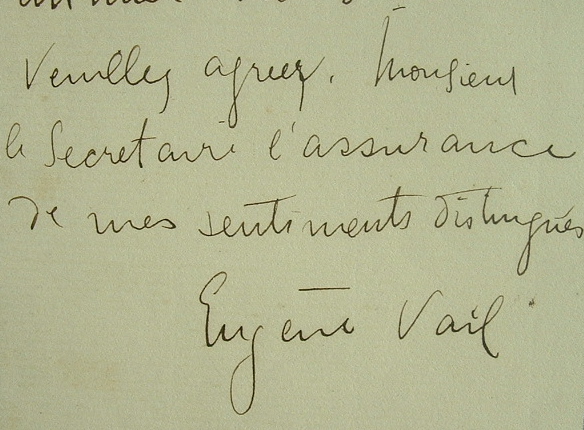 Veuillez agréer, Monsieur
le Secretaire l'assurance
de mes sentiments distingués
Eugène Vail